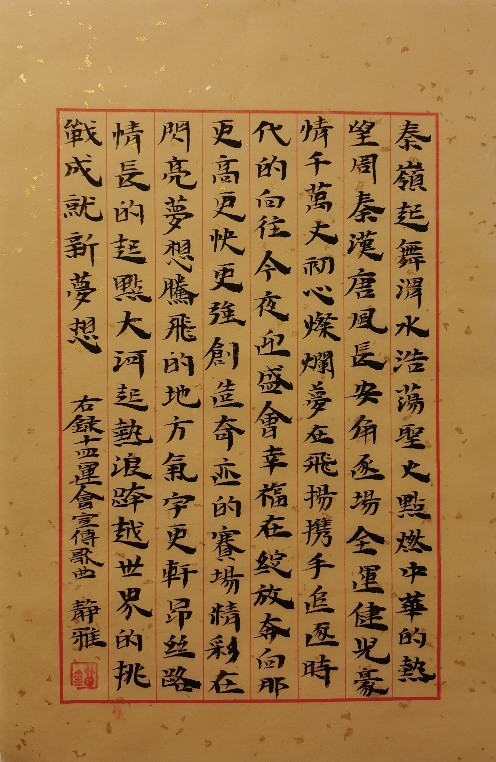 秦嶺起舞渭水浩荡聖火點燃中華的熱
望周秦漢唐風長安角逐場全運健兒豪
情千萬丈初心燦爛夢在飛揚携手追逐時
代的向往今夜迎盛會幸福在綻放奔向那
更高更快更強創造奇迹的賽場精彩在
閃亮夢想騰飛的地方氣宇更軒昂丝路
情長的起點大河起熱浪跨越世界的挑
戰成就新夢想
右録十四運會宣傳歌曲 靜雅